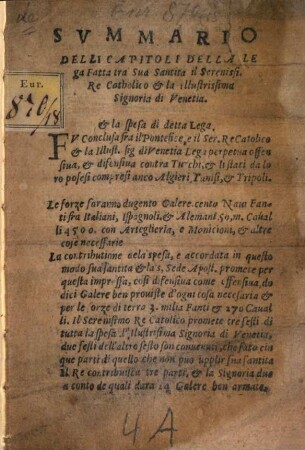 SVMMARIO
DELLI CAPITOLI DELLA LE
ga Fatta tra Sua Santita il Serenissi.
Re Catholico & la illustrissima
Signoria di Venetia.
Eur.
870/18
& la spesa di detta Lega.
FV Conclusa fra il Pontefice, e il Ser. Re Catolico
& la Illust. sig di Venetia Lega perpetua offen
siua, & difensiua contra Turchi, & li stati da lo
ro posesi compresi anco Algieri, Tunisi, & Tripoli.
Le forze saranno dugento Galere. cento Naui Fanti
si fra Italiani, Ispagnoli, & Alemani 50. m. Caual
li 4500. con Arteglieria, e Monicioni, & altre
cose necessarie
La contributione dela spesa, e accordata in questo
modo sua santita & la s, Sede Apost. promete per
questa impressa, cosi difensiua come offensiua, do
dici Galere ben proniste d'ogni cosa necesaria &
per le forze di terra 3. milia Fanti & 270 Caual
li. Il Serenissimo Re Catolico promete tre sesti di
tutta la spesa l'illustrissima Signoria di Venetia,
due sesti dell'altro sesto son conuenuti, che fato cin
que parti di quello che non può supplir sua santita
Il Re contribuisca tre parti, & la Signoria due
a conto de quali dara 24 Galere ben armate.
4 A